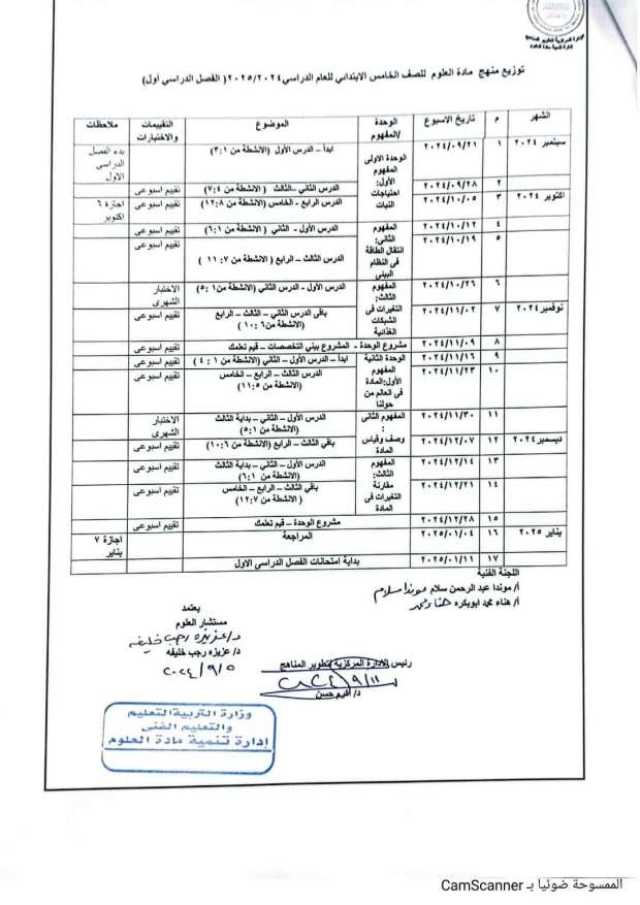 توزيع منهج مادة العلوم للصف الخامس الابتدائي للعام الدراسي ٢٠٢٥/٢٠٢٤ ( الفصل الدراسي اول)
الشهر م تاريخ الاسبوع الوحدة /المفهوم الموضوع التقييمات والاختبارات ملاحظات
سبتمبر ٢٠٢٤ ١ ٢٠٢٤/٠٩/٢١ الوحدة الاولى المفهوم الأول: احتياجات النبات ابدأ – الدرس الأول (الانشطة من ٣:١) بدء الفصل الدراسي الاول
٢ ٢٠٢٤/٠٩/٢٨ الدرس الثاني – الثالث (الانشطة من ٧:٤) تقييم اسبوعى
اكتوبر ٢٠٢٤ ٣ ٢٠٢٤/١٠/٠٥ الدرس الرابع - الخامس (الانشطة من ١٢:٨) تقييم اسبوعى اجازة ٦ اكتوبر
٤ ٢٠٢٤/١٠/١٢ المفهوم الثاني: انتقال الطاقة في النظام البيئي الدرس الأول - الثاني (الانشطة من ٦:١) تقييم اسبوعى
٥ ٢٠٢٤/١٠/١٩ الدرس الثالث – الرابع (الانشطة من ٧: ١١) تقييم اسبوعى
٦ ٢٠٢٤/١٠/٢٦ المفهوم الثالث: التغيرات في الشبكات الغذائية الدرس الأول - الدرس الثاني (الانشطة من ١: ٥) الاختبار الشهري
نوفمبر ٢٠٢٤ ٧ ٢٠٢٤/١١/٠٢ باقى الدرس الثاني – الثالث – الرابع (الانشطة من ٦: ١٠) تقييم اسبوعى
٨ ٢٠٢٤/١١/٠٩ مشروع الوحدة - المشروع بيني التخصصات – قيم تعلمك تقييم اسبوعى
٩ ٢٠٢٤/١١/١٦ الوحدة الثانية المفهوم الأول: المادة فى العالم من حولنا ابدأ – الدرس الأول – الثاني (الانشطة من ١: ٤) تقييم اسبوعى
١٠ ٢٠٢٤/١١/٢٣ الدرس الثالث – الرابع – الخامس (الانشطة من ١١:٥) تقييم اسبوعى
١١ ٢٠٢٤/١١/٣٠ المفهوم الثاني : وصف وقياس المادة الدرس الأول – الثاني – بداية الثالث (الانشطة من ٥:١) الاختبار الشهري
ديسمبر ٢٠٢٤ ١٢ ٢٠٢٤/١٢/٠٧ باقي الثالث – الرابع (الانشطة من ١٠:٦) تقييم اسبوعى
١٣ ٢٠٢٤/١٢/١٤ المفهوم الثالث: مقارنة التغيرات فى المادة الدرس الأول – الثاني – بداية الثالث (الانشطة من ٦:١) تقييم اسبوعى
١٤ ٢٠٢٤/١٢/٢١ باقي الثالث – الرابع – الخامس (الانشطة من ١٢:٧) تقييم اسبوعى
١٥ ٢٠٢٤/١٢/٢٨ مشروع الوحدة – قيم تعلمك تقييم اسبوعى
يناير ٢٠٢٥ ١٦ ٢٠٢٥/٠١/٠٤ المراجعة اجازة ٧ يناير
١٧ ٢٠٢٥/٠١/١١ بداية امتحانات الفصل الدراسي الاول
اللجنة الفنية
أ/ موندا عبد الرحمن سلام
أ/ هناء محمد ابوبكره
يعتمد
مستشار العلوم
د/ عزيزة رجب خليفه
د/ عزيزه رجب خليفه
٢٠٢٤/٩/٥
رئيس الإدارة المركزية لتطوير المناهج
٢٠٢٤/٩/١١
د/ أكرم حسن
وزارة التربية والتعليم
والتعليم الفنى
إدارة تنمية مادة العلوم
الممسوحة ضوئيا بـ CamScanner